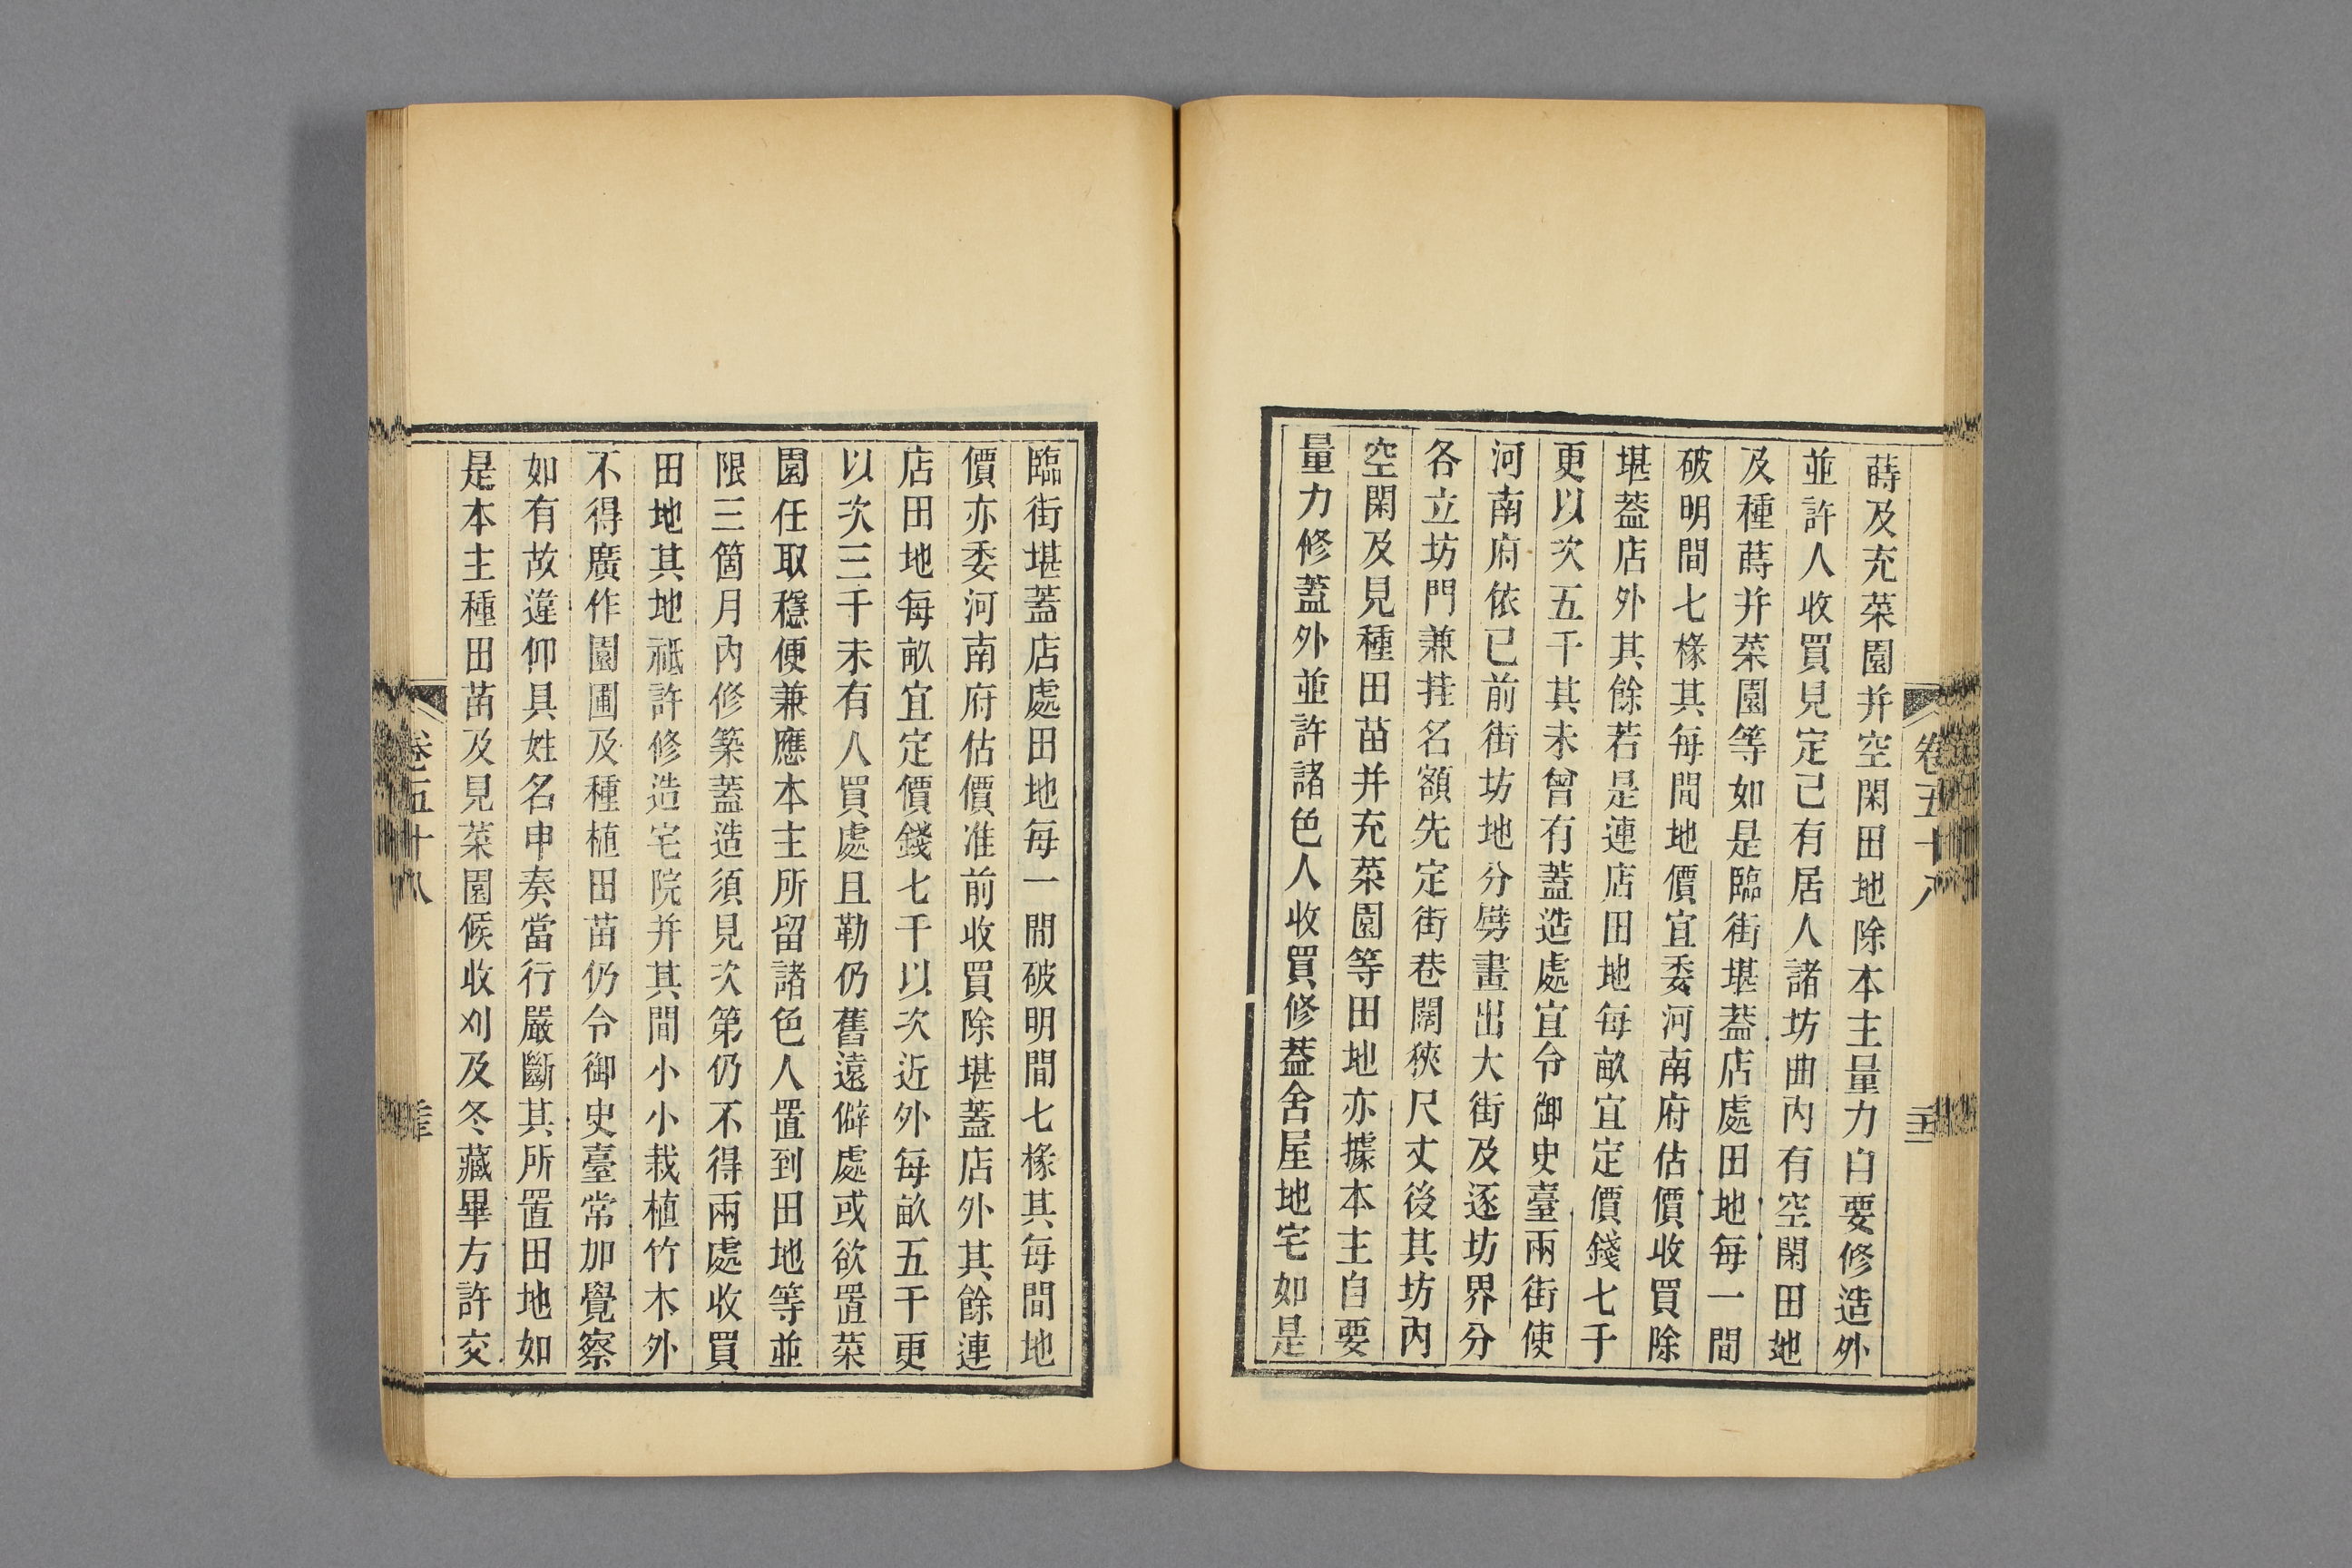 蒔及充菜園并空閑田地除本主量力自要修造外
並許人收買見定已有居人諸坊曲內有空閑田地
及種蒔并菜園等如是臨街堪葢店處田地每一間
破明間七椽其每間地價宜委河南府估價收買除
堪葢店外其餘若是連店田地每畝宜定價錢七千
更以次五千其未曾有蓋造處宜令御史臺兩街使
河南府依已前街坊地分劈畫出大街及逐坊界分
各立坊門兼挂名額先定街巷闊狹尺丈後其坊內
空閑及見種田苗并充菜園等田地亦據本主自要
量力修蓋外並許諸色人收買修葢舍屋地宅如是
卷五十八
臨街堪蓋店處田地每一間破明間七椽其每間地
價亦委河南府估價准前收買除堪蓋店外其餘連
店田地每畝宜定價錢七千以次近外每畝五千更
以次三千未有人買處且勒仍舊遠僻處或欲置菜
園任取穩便兼應本主所留諸色人置到田地等並
限三箇月內修築蓋造須見次第仍不得兩處收買
田地其地祗許修造宅院并其間小小栽植竹木外
不得廣作園圃及種植田苗仍令御史臺常加覺察
如有故違仰具姓名申奏當行嚴斷其所置田地如
是本主種田苗及見菜園候收刈及冬藏畢方許交
卷五十八